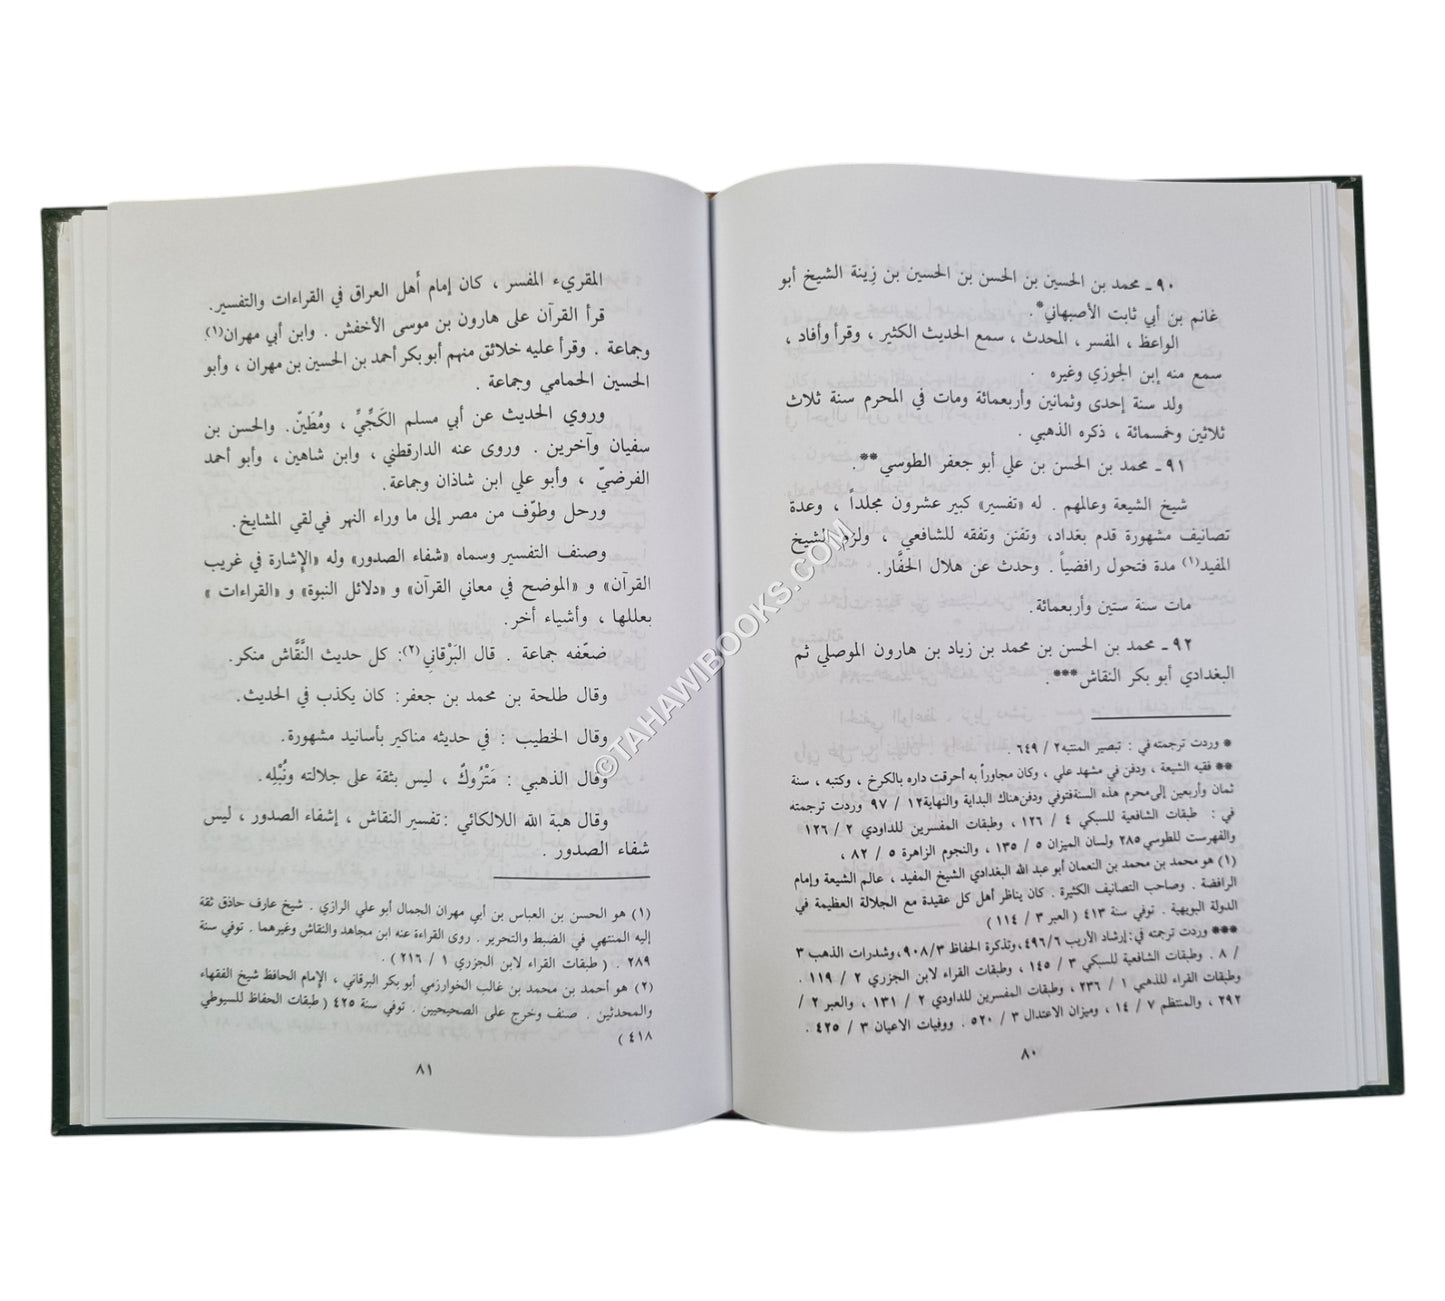 ٩٠ ـ محمد بن الحسين بن الحسن بن الحسين بن زِينة الشيخ أبو
غانم بن أبي ثابت الأصبهاني* .
الواعظ ، المفسر ، المحدث ، سمع الحديث الكثير ، وقرأ وأفاد ،
سمع منه إبن الجوزي وغيره .
ولد سنة إحدى وثمانين وأربعمائة ومات في المحرم سنة ثلاث
ثلاثين وخمسمائة ، ذكره الذهبي .
٩١ ـ محمد بن الحسن بن علي أبو جعفر الطوسي** .
شيخ الشيعة وعالمهم . له «تفسير» كبير عشرون مجلداً ، وعدة
تصانيف مشهورة قدم بغداد، وتفنن وتفقه للشافعي ، ولزم الشيخ
المفيد(١) مدة فتحول رافضياً . وحدث عن هلال الحفَّار.
مات سنة ستين وأربعمائة.
٩٢ ـ محمد بن الحسن بن محمد بن زياد بن هارون الموصلي ثم
البغدادي أبو بكر النقاش*** .
* وردت ترجمته في : تبصير المنتبه٢ / ٦٤٩ .
** فقيه الشيعة ، ودفن في مشهد علي ، وكان مجاوراً به أحرقت داره بالكرخ ، وكتبه ، سنة
ثمان وأربعين إلى محرم هذه السنةفتوفي ودفن هناك البداية والنهاية١٢ / ٩٧ وردت ترجمته
في : طبقات الشافعية للسبكي ٤ / ١٢٦ ، وطبقات المفسرين للداودي ٢ / ١٢٦
والفهرست للطوسي ٢٨٥ ولسان الميزان ٥ / ١٣٥ ، والنجوم الزاهرة ٥ / ٨٢ ،
(١) هو محمد بن محمد بن النعمان أبو عبد الله البغدادي الشيخ المفيد ، عالم الشيعة وإمام
الرافضة . وصاحب التصانيف الكثيرة . كان يناظر أهل كل عقيدة مع الجلالة العظيمة في
الدولة البويهية . توفي سنة ٤١٣ ( العبر ٣ / ١١٤ )
*** وردت ترجمته في: إرشاد الأريب ٤٩٦/٦، وتذكرة الحفاظ ٩٠٨/٣، وشدرات الذهب ٣
/ ٨ . وطبقات الشافعية للسبكي ٣ / ١٤٥ ، وطبقات القراء لابن الجزري ٢ / ١١٩ .
وطبقات القراء للذهبي ١ / ٢٣٦ ، وطبقات المفسرين للداودي ٢ / ١٣١ ، والعبر ٢ /
٢٩٢ ، والمنتظم ٧ / ١٤ ، وميزان الاعتدال ٣ / ٥٢٠ . ووفيات الاعيان ٣ / ٤٢٥ .
٨٠
المقريء المفسر ، كان إمام أهل العراق في القراءات والتفسير.
قرأ القرآن على هارون بن موسى الأخفش . وابن أبي مهران(١)
وجماعة . وقرأ عليه خلائق منهم أبو بكر أحمد بن الحسين بن مهران ، وأبو
الحسين الحمامي وجماعة .
وروي الحديث عن أبي مسلم الكَجِّيِّ ، ومُطَيّن. والحسن بن
سفيان وآخرين . وروى عنه الدارقطني ، وابن شاهين ، وأبو أحمد
الفرضيّ ، وأبو علي ابن شاذان وجماعة.
ورحل وطوّف من مصر إلى ما وراء النهر في لقي المشايخ.
وصنف التفسير وسماه «شفاء الصدور» وله «الإشارة في غريب
القرآن» و «الموضح في معاني القرآن» و «دلائل النبوة» و «القراءات »
بعللها ، وأشياء أخر.
ضعّفه جماعة . قال البَرْقاني(٢): كل حديث النَّقَّاش منكر.
وقال طلحة بن محمد بن جعفر: كان يكذب في الحديث.
وقال الخطيب : في حديثه مناكير بأسانيد مشهورة.
وقال الذهبي : مَتْرُوكٌ ، ليس بثقة على جلالته ونُبْلِه.
وقال هبة الله اللالكائي : تفسير النقاش ، إشفاء الصدور ، ليس
شفاء الصدور .
(١) هو الحسن بن العباس بن أبي مهران الجمال أبو علي الرازي . شيخ عارف حاذق ثقة
إليه المنتهي في الضبط والتحرير . روى القراءة عنه ابن مجاهد والنقاش وغيرهما . توفي سنة
٢٨٩ . ( طبقات القراء لابن الجزري ١ / ٢١٦ ) .
(٢) هو أحمد بن محمد بن غالب الخوارزمي أبو بكر البرقاني ، الإمام الحافظ شيخ الفقهاء
والمحدثين . صنف وخرج على الصحيحين . توفي سنة ٤٢٥ ( طبقات الحفاظ للسيوطي
٤١٨ )
٨١
©TAHAWIBOOKS.COM